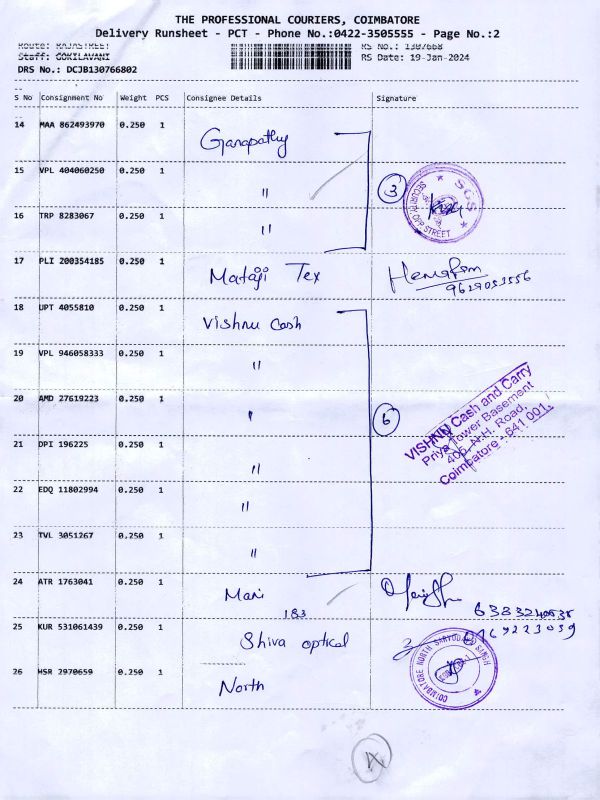 THE PROFESSIONAL COURIERS, COIMBATORE
Delivery Runsheet - PCT - Phone No.:0422-3505555 - Page No.:2
Route: RAJASTREET RS No.: 1307668
Staff: GOKILAVANI RS Date: 19-Jan-2024
DRS No.: DCJB130766802
S No Consignment No Weight PCS Consignee Details Signature
14 MAA 862493970 0.250 1 Ganapathy
15 VPL 404060250 0.250 1 " 3
SGS
SECURITY OPP STREET
16 TRP 8283067 0.250 1 "
17 PLI 200354185 0.250 1 Mataji Tex Hemaram
9629053556
18 UPT 4055810 0.250 1 Vishnu Cash
19 VPL 946058333 0.250 1 "
20 AMD 27619223 0.250 1 " 6
VISHNU Cash and Carry
Priya Tower Basement
406, N.H. Road,
Coimbatore - 641 001.
21 DPI 196225 0.250 1 "
22 EDQ 11802994 0.250 1 "
23 TVL 3051267 0.250 1 "
24 ATR 1763041 0.250 1 Mani
183
25 KUR 531061439 0.250 1 Shiva optical
26 HSR 2970659 0.250 1 North
COIMBATORE NORTH SARVODAYA SANGH